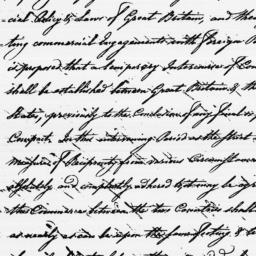 cial Policy & Laws of Great Britain, and the
ting commercial Engagements with Foreign
is proposed that a temporary Intercourse of Com
shall be established between Great Britain & the
States, previously to the Conclusion of any final
Compact. In this intervening Period as the strict
measure of Reciprocity from various Circumstances
absolutely and completely adhered to may be ag
the Commerce between the two Countries shall
as nearly as can be upon the same footing &